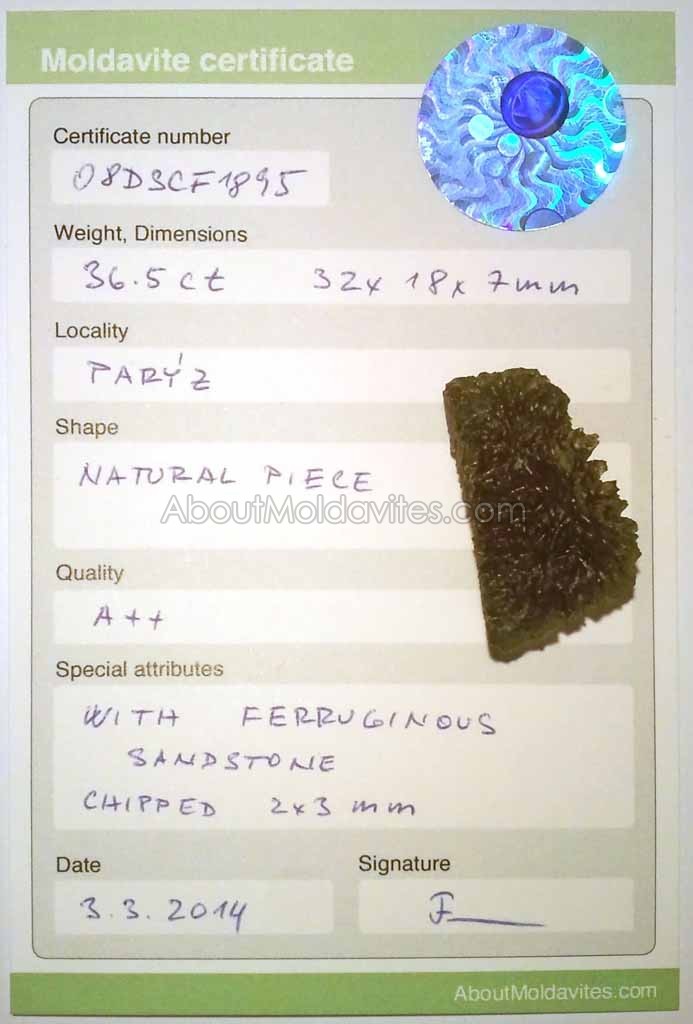 Moldavite certificate
Certificate number
08DSCF1895
Weight, Dimensions
36.5 ct 32x 18x 7mm
Locality
PARÝZ
Shape
NATURAL PIECE
AboutMoldavites.com
Quality
A++
Special attributes
WITH FERRUGINOUS
SANDSTONE
CHIPPED 2x3 mm
Date
Signature
3.3.2014
AboutMoldavites.com